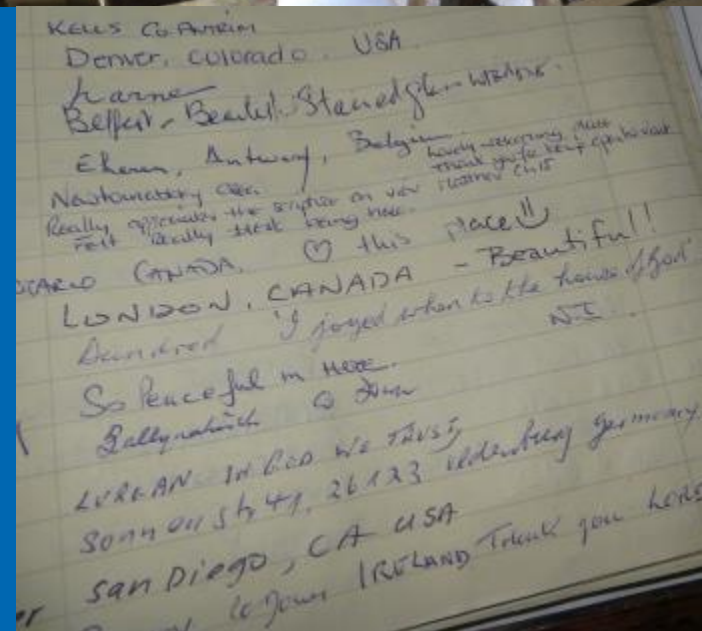 KELLS Co ANTRIM
Denver, Colorado. USA
Larne
Belfast - Beautiful Stained glass windows.
Ekeren, Antwerp, Belgium
lovely welcoming place
Thank you for keeping open
Newtownabbey
Really appreciate the scripture on view
Felt really being here.
CANADA. ♡ this place
LONDON, CANADA - Beautiful!
Dundrod "I joyed when to the house of God"
N.I.
So Peaceful in Here.
Ballynahinch Co Down
LURGAN IN GOD WE TRUST
26123 Oldenburg Germany
San Diego, CA USA
Co Down IRELAND Thank you LORD